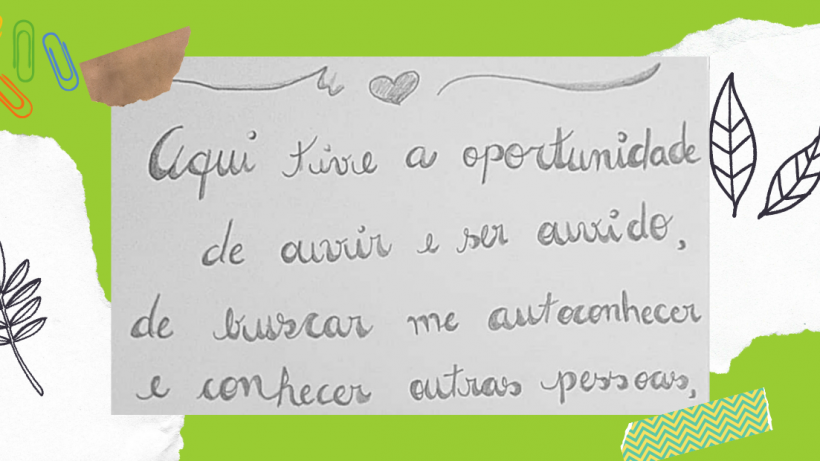 Aqui tive a oportunidade
de ouvir e ser ouvido,
de buscar me autoconhecer
e conhecer outras pessoas,